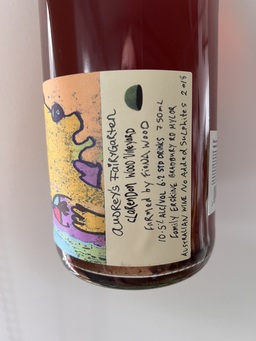 AUDREY'S FAIRYGARTEN
CLARENDON WOOD VINEYARD
FORMED by FIONA WOOD
10.5% ALC/VOL 6.2 STD DRINKS 750mL
FAMILY ERSKINE BRADBURY RD MYLOR
AUSTRALIAN WINE NO ADDED SULPHITES 2015